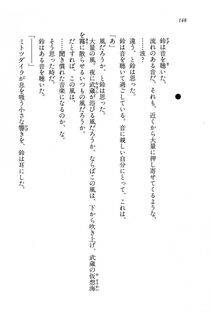 148
流れのある音だ。それも、近くから大量に押し寄せてくるような、
鈴は音を聴いて思った。
違う、と鈴は思った。
鈴は、音を聴いて過ごしている。音に親しい自分にとって、
大量の風、夜に武蔵が浴びる風だろうか。ならばこの風は、下から吹き上げ、武蔵の仮想海
を散らせるいつもの風だろうか。
だとすれば、
……聞き慣れた音楽になるのか。
そう思った時だ。
ミトツダイラが息を吸う小さな響きを、鈴は耳にした。